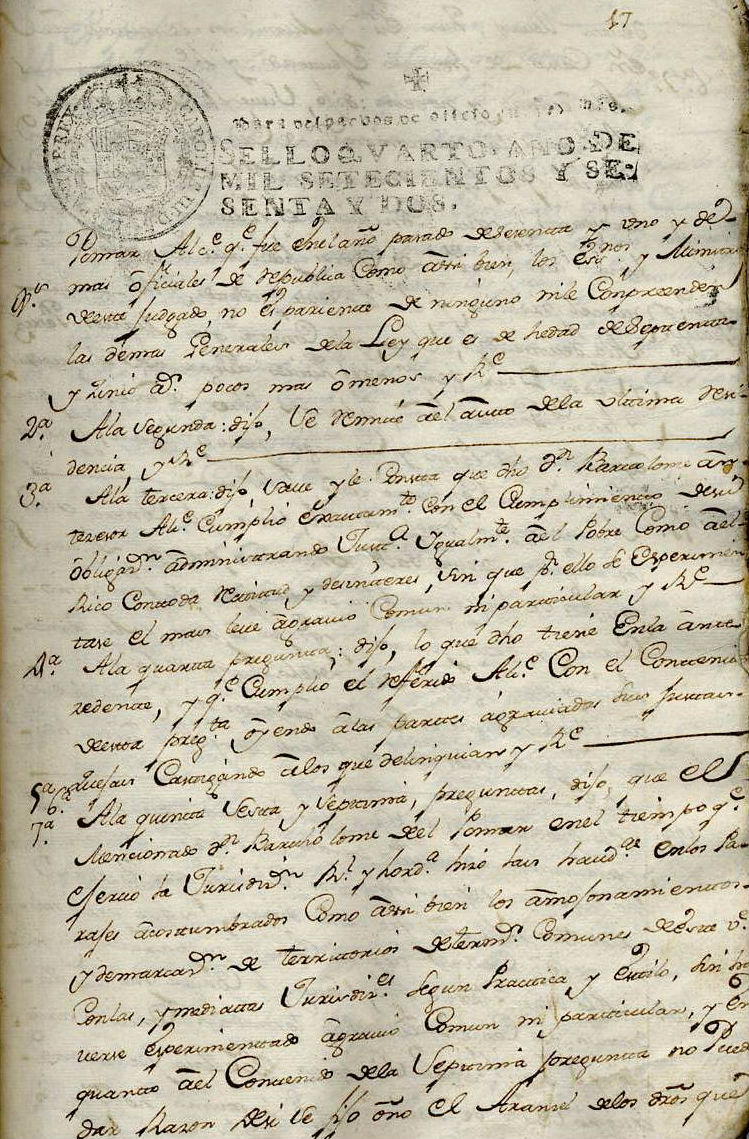 17
SELLO QVARTO. AÑO DE
MIL SETECIENTOS Y SE-
SENTA Y DOS.
Pomar Alc.e q.e fue enel año pasado de sesenta y uno y de
mas ofiziales de republica Como assi bien, los Ess.nos y Ministros
deeste Juzgado, no es pariente de ninguno nile Conpreenden
las demas Generales dela Ley que es de hedad de sesenta
y zinco a.s pocos mas ômenos y R.e
2.a Ala segunda: dijo, Se remite âel auto dela ultima resi-
dencia y R.e
3.a Ala tercera: dijo, save y le Consta que dho D.n Bartolome an-
tezesor Alc.e Cumplio exactam.te Con el Cumplimiento de su
obligaz.n administrando Just.a Ygualm.te âel Pobre Como âel
Rico Contoda rectitud y desinteres, sin que p.r ello se experimen
tase el mas leve agravio Comun ni particular y R.e
4.a Ala quarta pregunta; dijo, lo que dho tiene Enla ante
zedente, y q.e Cumplio el referido Alc.e Con el Contenido
deesta preg.ta oyendo âlas partes agraviadas sus justas
quejas Castigando âlos que delinquian y R.e
5.a 6.a
7.a Ala quinta sesta, y septima, preguntas, dijo, que el
Mencionado D.n Bartholome del Pomar enel tiempo q.e
exercio la Jurisdiz.n R.l y hord.a hizo las en los Pa
rajes acostumbrados Como assi bien los amojonamientos
y demarcaz.n de territorios determ.s Comunes deesta v.a
Conlas, ymediatas Jurisdiz.es segun Practica y Estilo, sin ha
verse experimentado agravio Comun ni particular, y en
quanto âel Contenido dela Septima pregunta no Puede
dar Razon desi se fijo ôno el Aranzel delos dros que